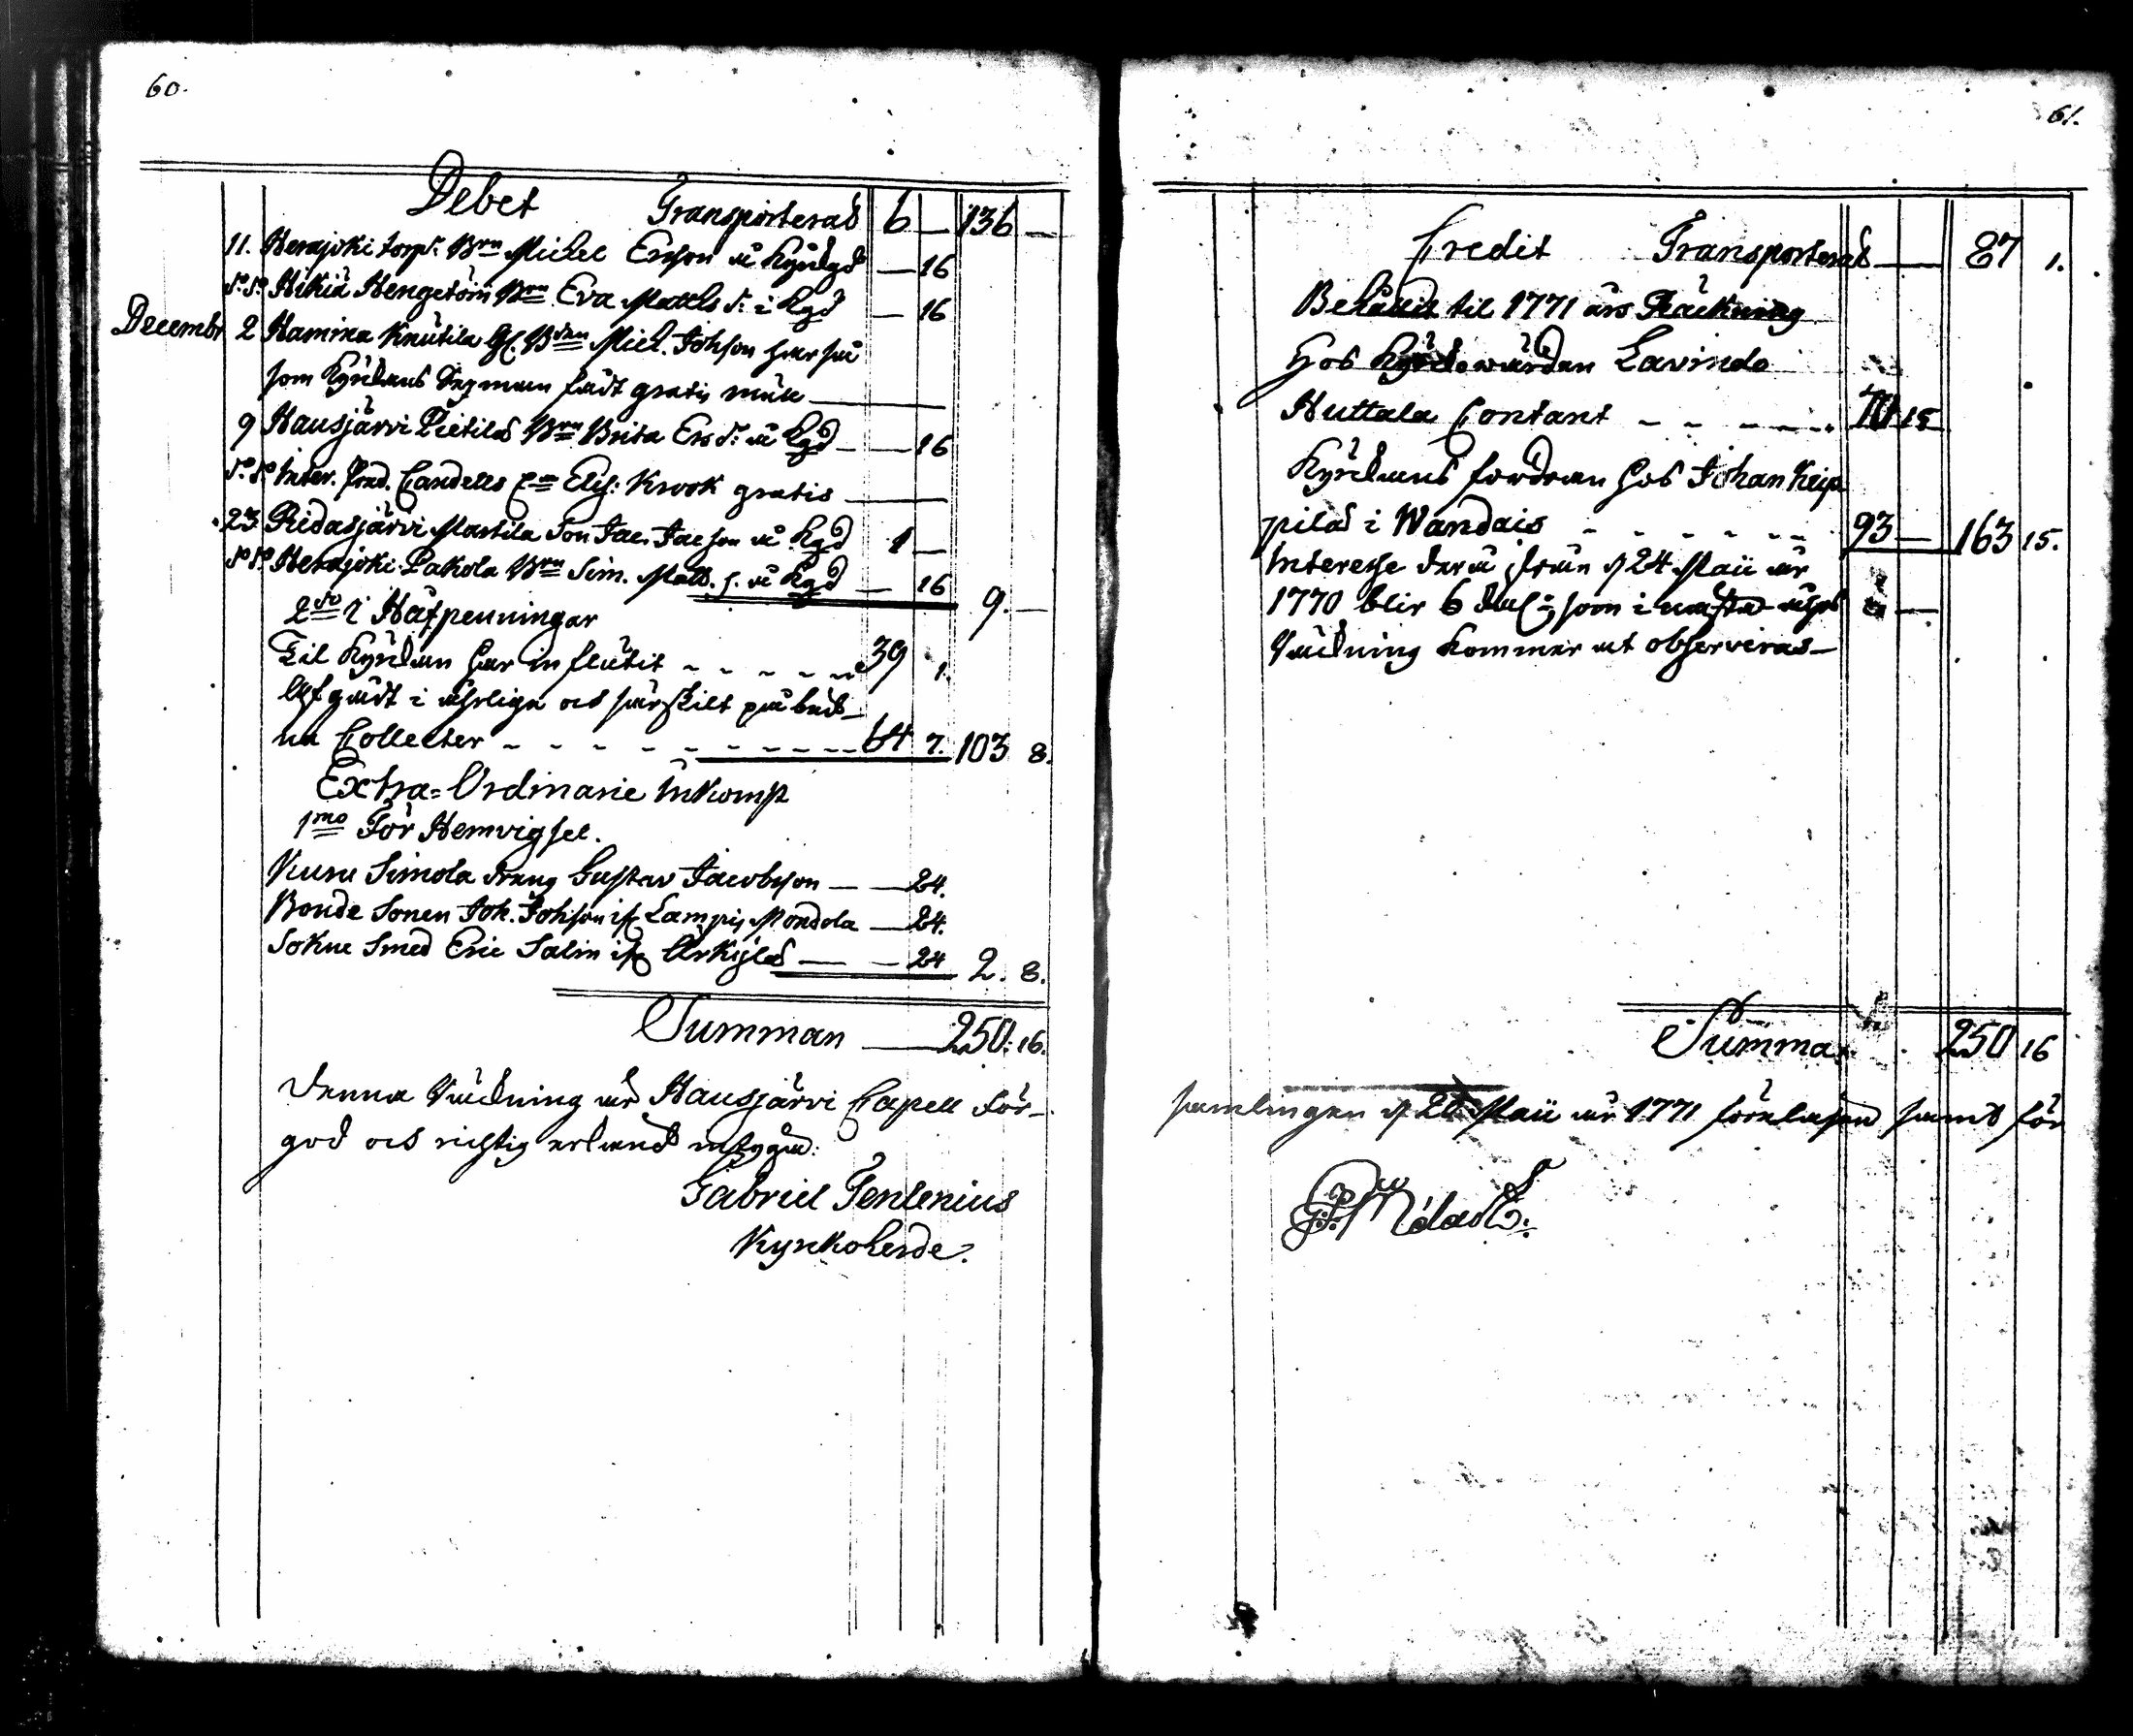 60.
Debet Transporterad 6 — 136 —
11. Herajoki torp. Brn Michel Ersson å Kyrkgd — 16
do do Hikiä Hengetöin Brn Eva Matts d. i Kgd — 16
Decembr 2 Hamina Knutila Gl. Bden Mich. Johsson har så
som Kyrkans Sexman fådt gratis mull —
9 Hausjärvi Pietilas Brn Brita Ers d. å Kgd — 16
do do Inter. Candells Elis: Krook gratis —
23 Ridasjärvi Mastila Son Jac. Jacsson å Kgd 1 —
do do Herajoki Pakola Brn Sim. Matts. s. å Kgd — 16 9. —
2do i Håfpenningar
Til Kyrkan har influtit - - - - - 39 1.
Afgådt i åhrliga och särskilt påbud-
na Collecter - - - - - - - - - 64 7. 103 8.
Extra-Ordinarie Inkomst
1mo För Hemvigsel.
Kuru Simola dräng Gustav Jacobsson — — 24.
Bonde Sonen Joh. Johsson ifr Lampis Mondola — 24.
Sokne Smed Eric Salin ifr Arkylä — — 24 2. 8.
Summan — 250. 16.
Denna Räckning är Hausjärvi Capell För-
god och richtig erkänd intygar:
Gabriel Fenlenius
Kyrkoherde.
61.
Credit Transporterad — 87 1.
Behållit til 1771 års Räckning
Hos Kyrckowärden Lavinde
Huttala Contant - - - - - 70 15
Kyrckans fordran hos Johan Keip
pilas i Wandais - - - - - - 93 — 163 15.
Interesse derå ifrån d 24 Maii år
1770 blir 6 dal som i nästa åhrs —
Räckning kommer at observeras —
Summa 250 16
samlingen d 20 Maii år 1771 föreläsen samt för